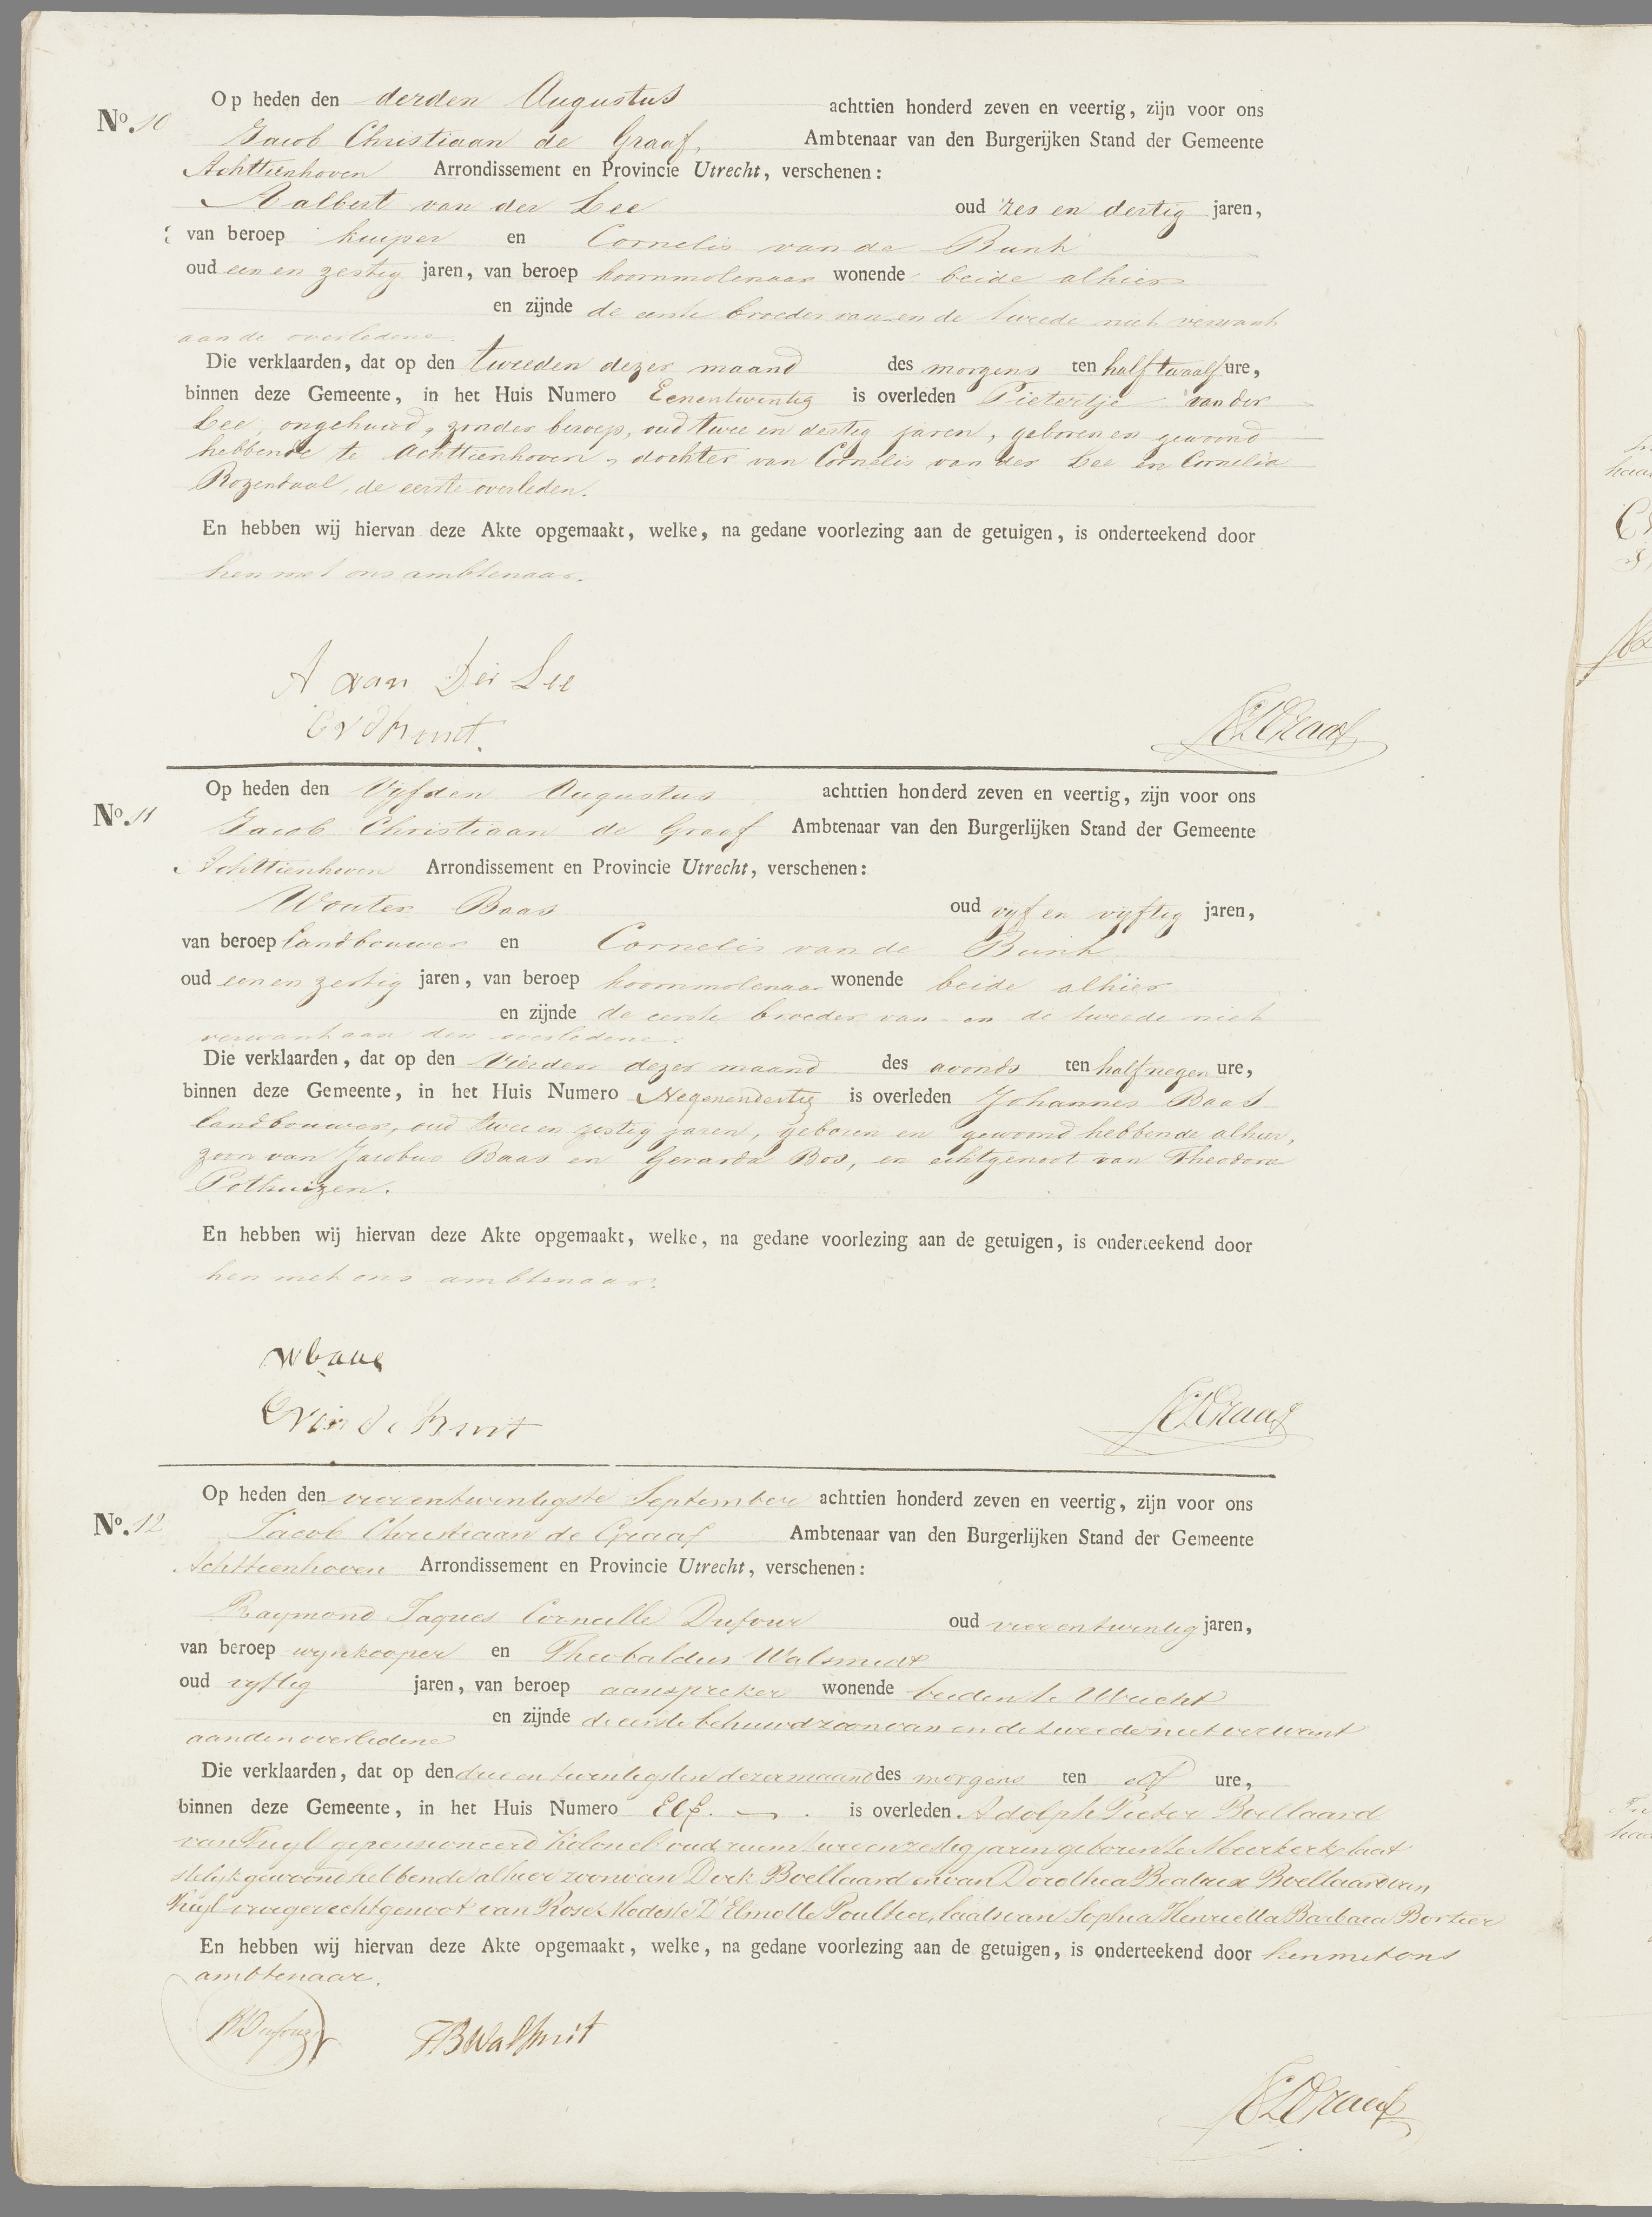 Op heden den derden Augustus achttien honderd zeven en veertig, zijn voor ons
No. 10
Jacob Christiaan de Graaf, Ambtenaar van den Burgerijken Stand der Gemeente
Achttienhoven Arrondissement en Provincie Utrecht, verschenen:
Aalbert van der Lee oud zes en dertig jaren,
van beroep kuiper en Cornelis van de Bunt
oud een en zestig jaren, van beroep koornmolenaar wonende beide alhier
en zijnde de eerste broeder van en de tweede niet verwant
aan de overledene.
Die verklaarden, dat op den tweeden dezer maand des morgens ten half twaalf ure,
binnen deze Gemeente, in het Huis Numero Eenentwintig is overleden Pietertje van der
Lee, ongehuwd, zonder beroep, oud twee en dertig jaren, geboren en gewoond
hebbende te Achttienhoven, dochter van Cornelis van der Lee en Cornelia
Rozendaal, de eerste overleden.
En hebben wij hiervan deze Akte opgemaakt, welke, na gedane voorlezing aan de getuigen, is onderteekend door
hen met ons ambtenaar.
A van Der Lee
JCDGraaf
Op heden den Vijfden Augustus achttien honderd zeven en veertig, zijn voor ons
No. 11
Jacob Christiaan de Graaf Ambtenaar van den Burgerlijken Stand der Gemeente
Achttienhoven Arrondissement en Provincie Utrecht, verschenen:
Wouter Baas oud vijf en vijftig jaren,
van beroep landbouwer en Cornelis van de Bunt
oud een en zestig jaren, van beroep koornmolenaar wonende beide alhier
en zijnde de eerste broeder van en de tweede niet
verwant aan den overledene.
Die verklaarden, dat op den Vierden dezer maand des avonds ten half negen ure,
binnen deze Gemeente, in het Huis Numero Negenendertig is overleden Johannes Baas
landbouwer, oud twee en zestig jaren, geboren en gewoond hebbende alhier,
zoon van Jacobus Baas en Gerarda Bos, en echtgenoot van Theodora
Pothuizen.
En hebben wij hiervan deze Akte opgemaakt, welke, na gedane voorlezing aan de getuigen, is onderteekend door
hen met ons ambtenaar.
W Baas
C van de Bunt
JCDGraaf
Op heden den vierentwintigste September achttien honderd zeven en veertig, zijn voor ons
No. 12
Jacob Christiaan de Graaf Ambtenaar van den Burgerlijken Stand der Gemeente
Achttienhoven Arrondissement en Provincie Utrecht, verschenen:
Raymond Jaques Corneille Dufour oud vier en twintig jaren,
van beroep wijnkooper en Theobaldus Walsmidt
oud vijftig jaren, van beroep aanspreker wonende beiden te Utrecht
en zijnde de eerste behuwdzoon van en de tweede niet verwant
aan den overledene
Die verklaarden, dat op den drie en twintigsten dezer maand des morgens ten elf ure,
binnen deze Gemeente, in het Huis Numero Elf. is overleden Adolph Pieter Boellaard
van Tuyl gepensioneerd Kolonel oud ruim twee en zestig jaren geboren te Meerkerk laat
stelijk gewoond hebbende alhier zoon van Dirk Boellaard en van Dorothea Beatrix Boellaard van
Tuyl vroeger echtgenoot van Rose Modeste D'Elmotte Poultier, laatst van Sophia Henrietta Barbara Bortier
En hebben wij hiervan deze Akte opgemaakt, welke, na gedane voorlezing aan de getuigen, is onderteekend door hen met ons
ambtenaar.
RDufour ThB Walsmit
JCDGraaf